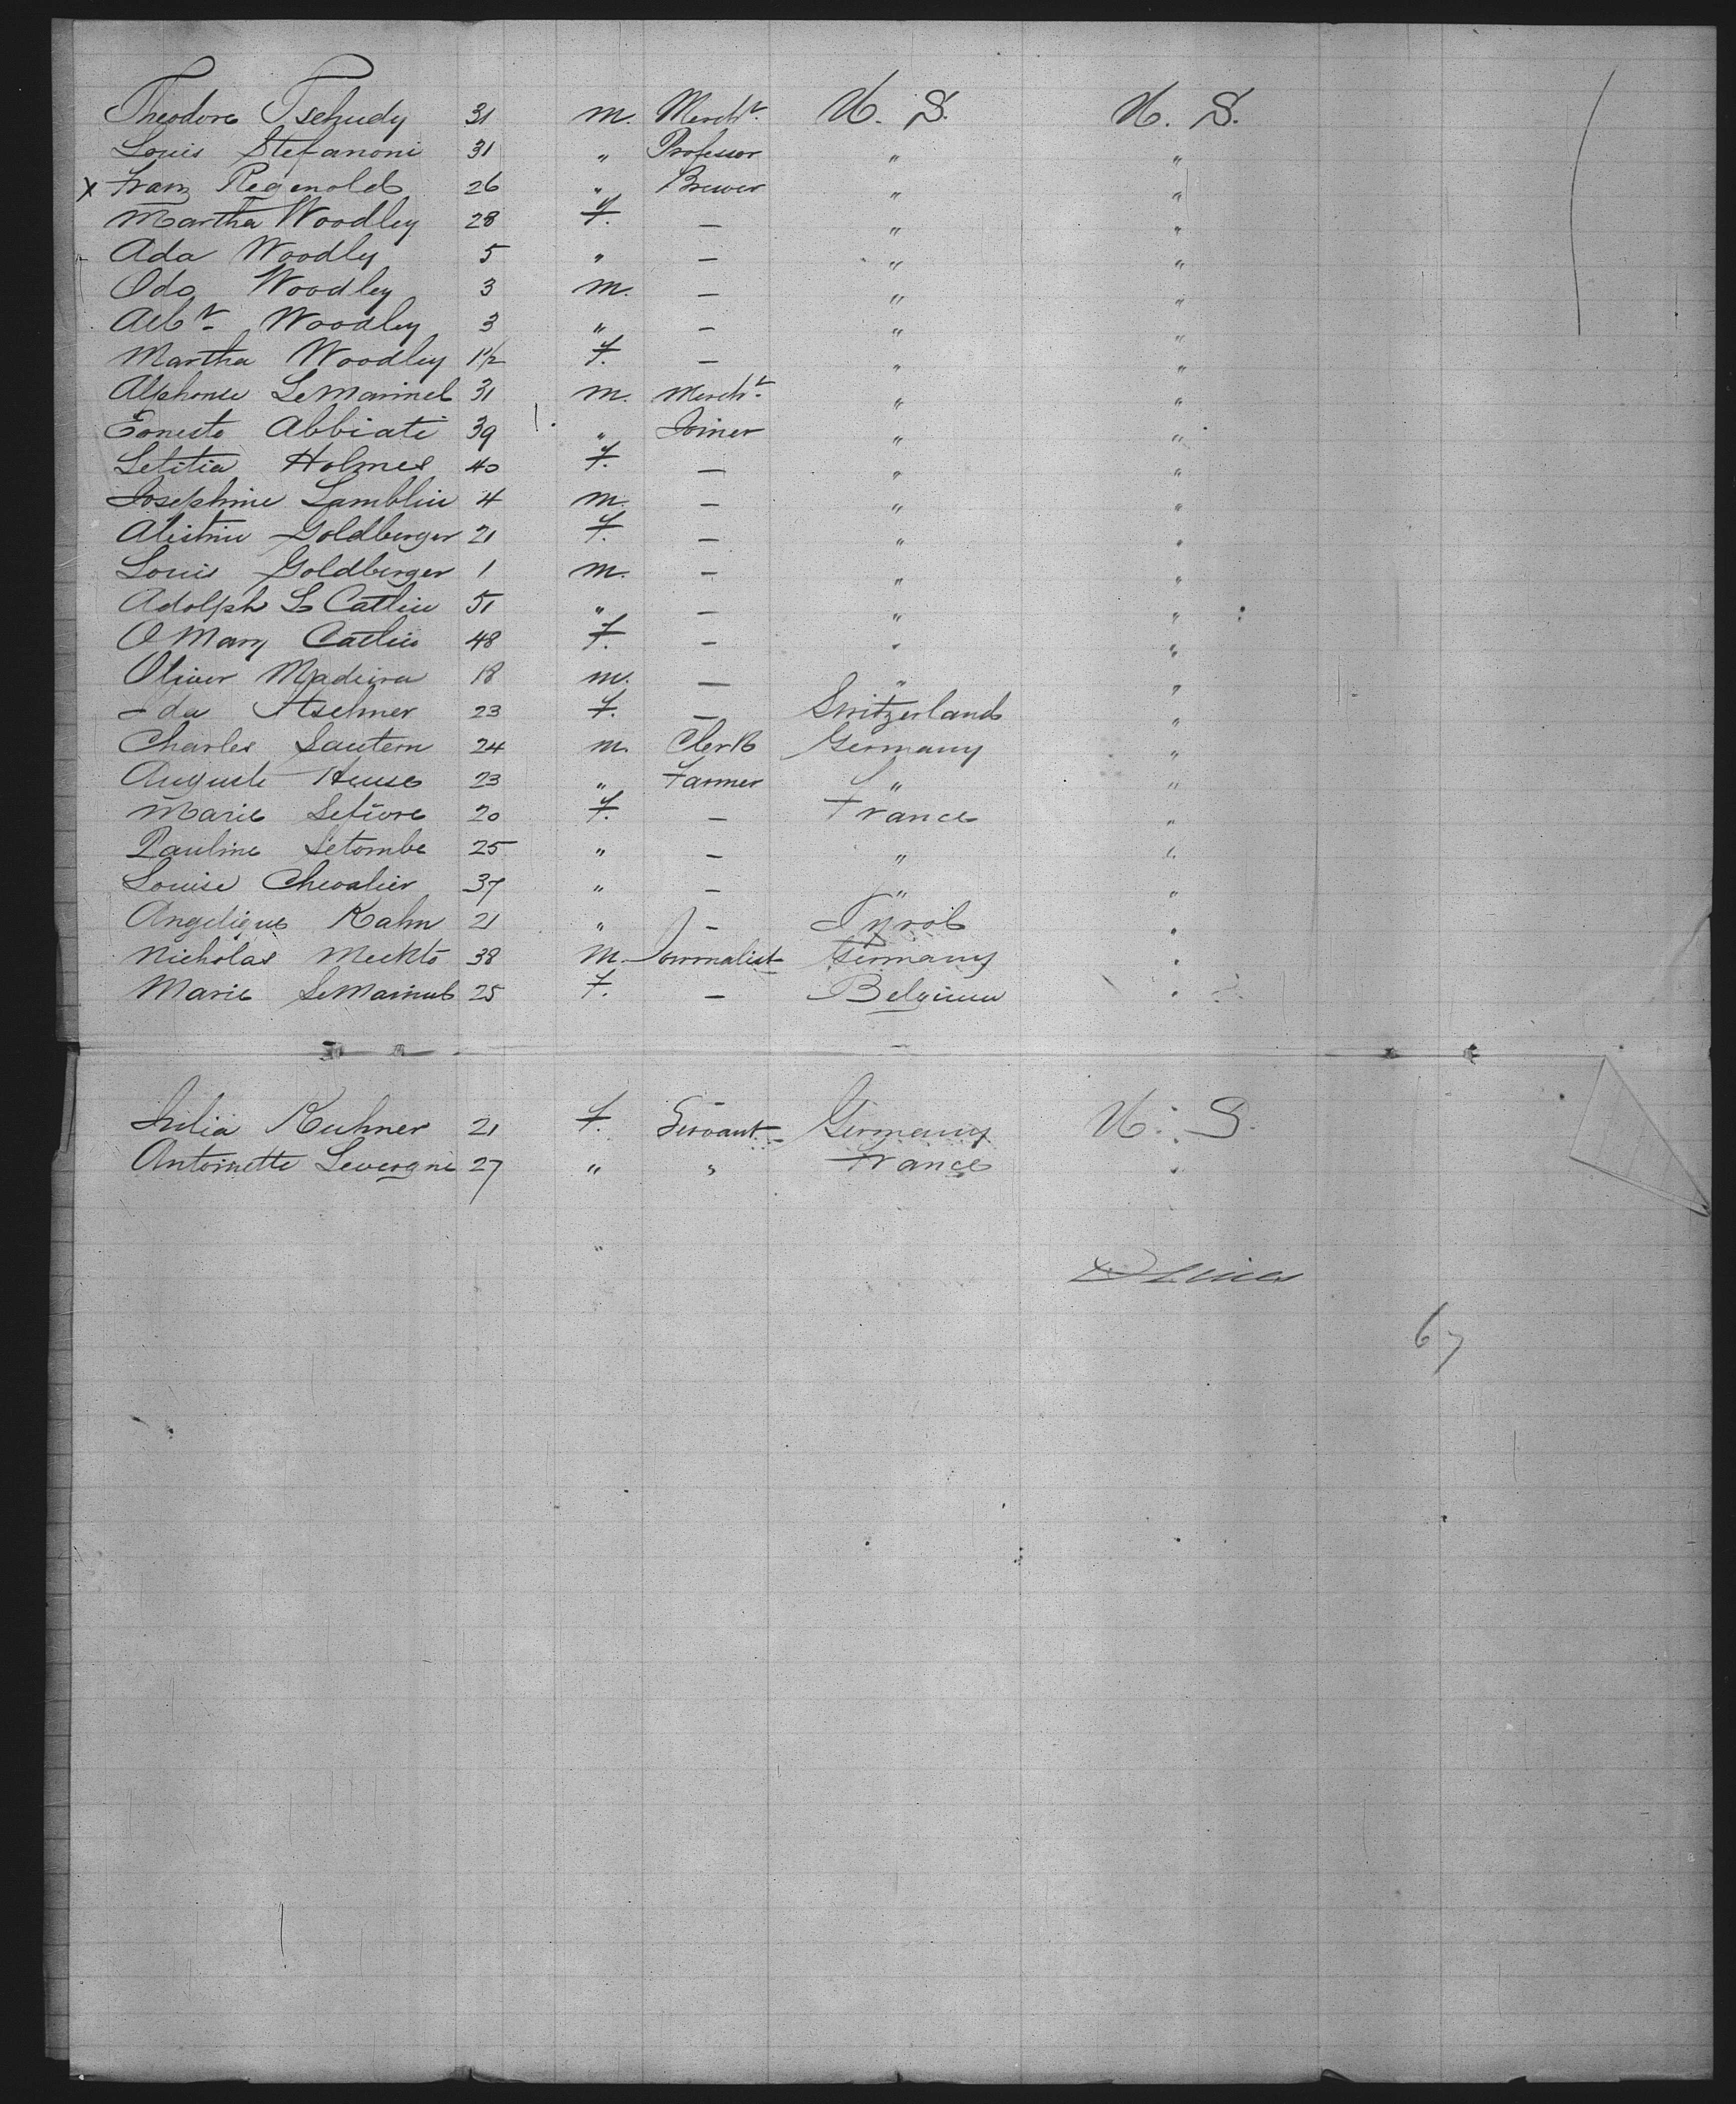 Theodore Tschudy 31 m. Mercht. U. S. U. S.
Louis Stefanoni 31 " Professor " "
x Franz Regenold 26 " Brewer " "
Martha Woodley 28 f. — " "
Ada Woodly 5 " — " "
Odo Woodley 3 m. — " "
Albt. Woodley 3 " — " "
Martha Woodley 1½ f. — " "
Alphonse LeMarinel 31 m. Mercht. " "
Ernesto Abbiati 39 " Joiner " "
Letitia Holmes 40 f. — " "
Josephine Lamblin 4 m. — " "
Goldberger 21 f. — " "
Louis Goldberger 1 m. — " "
Adolph L Catlin 51 " — " "
O Mary Catlin 48 f. — " "
Oliver Madeira 18 m. — " "
Ida 23 f. — Switzerland "
Charles Sautern 24 m. Clerk Germany "
Auguste 23 " Farmer " "
Marie Lefevre 20 f. — France "
Pauline Letombe 25 " — " "
Louise Chevalier 37 " — " "
Angelique Kahn 21 " — Tyrol "
Nicholas 38 m. Journalist Germany "
Marie 25 f. — Belgium "
Julia Kuhner 21 f. Servant Germany U. S.
Antoinette Levergne 27 " " France "
67